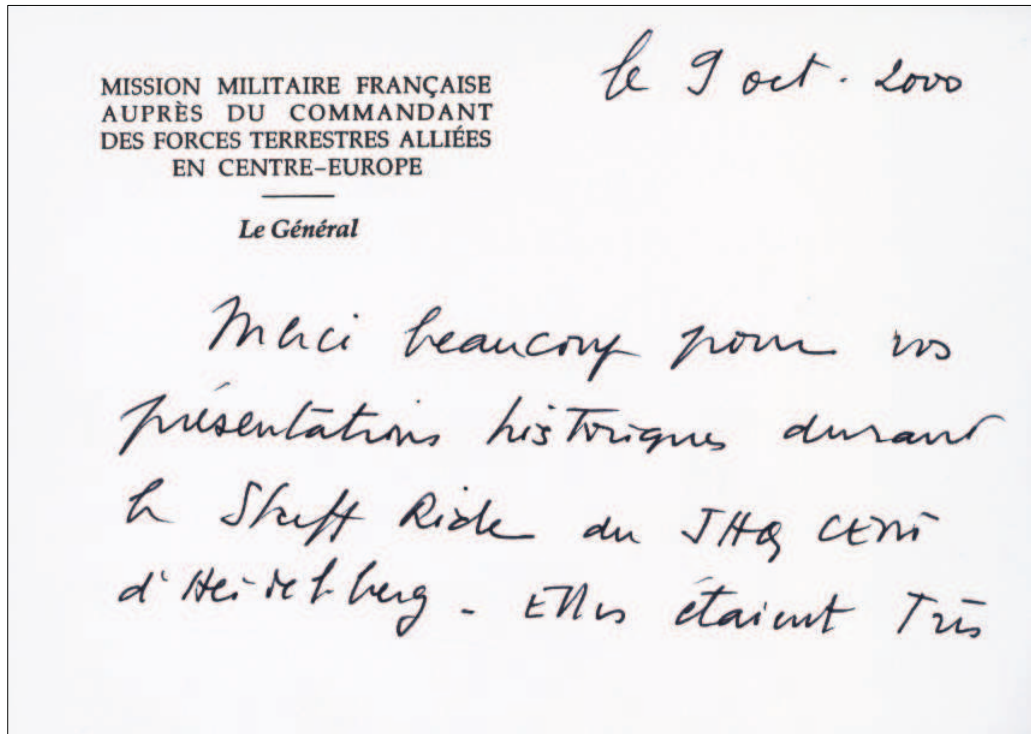 le 9 oct. 2000
MISSION MILITAIRE FRANÇAISE
AUPRÈS DU COMMANDANT
DES FORCES TERRESTRES ALLIÉES
EN CENTRE-EUROPE
Le Général
Merci beaucoup pour vos
présentations historiques durant
le Staff Ride du JHQ CENT
d'Heidelberg - Elles étaient Très